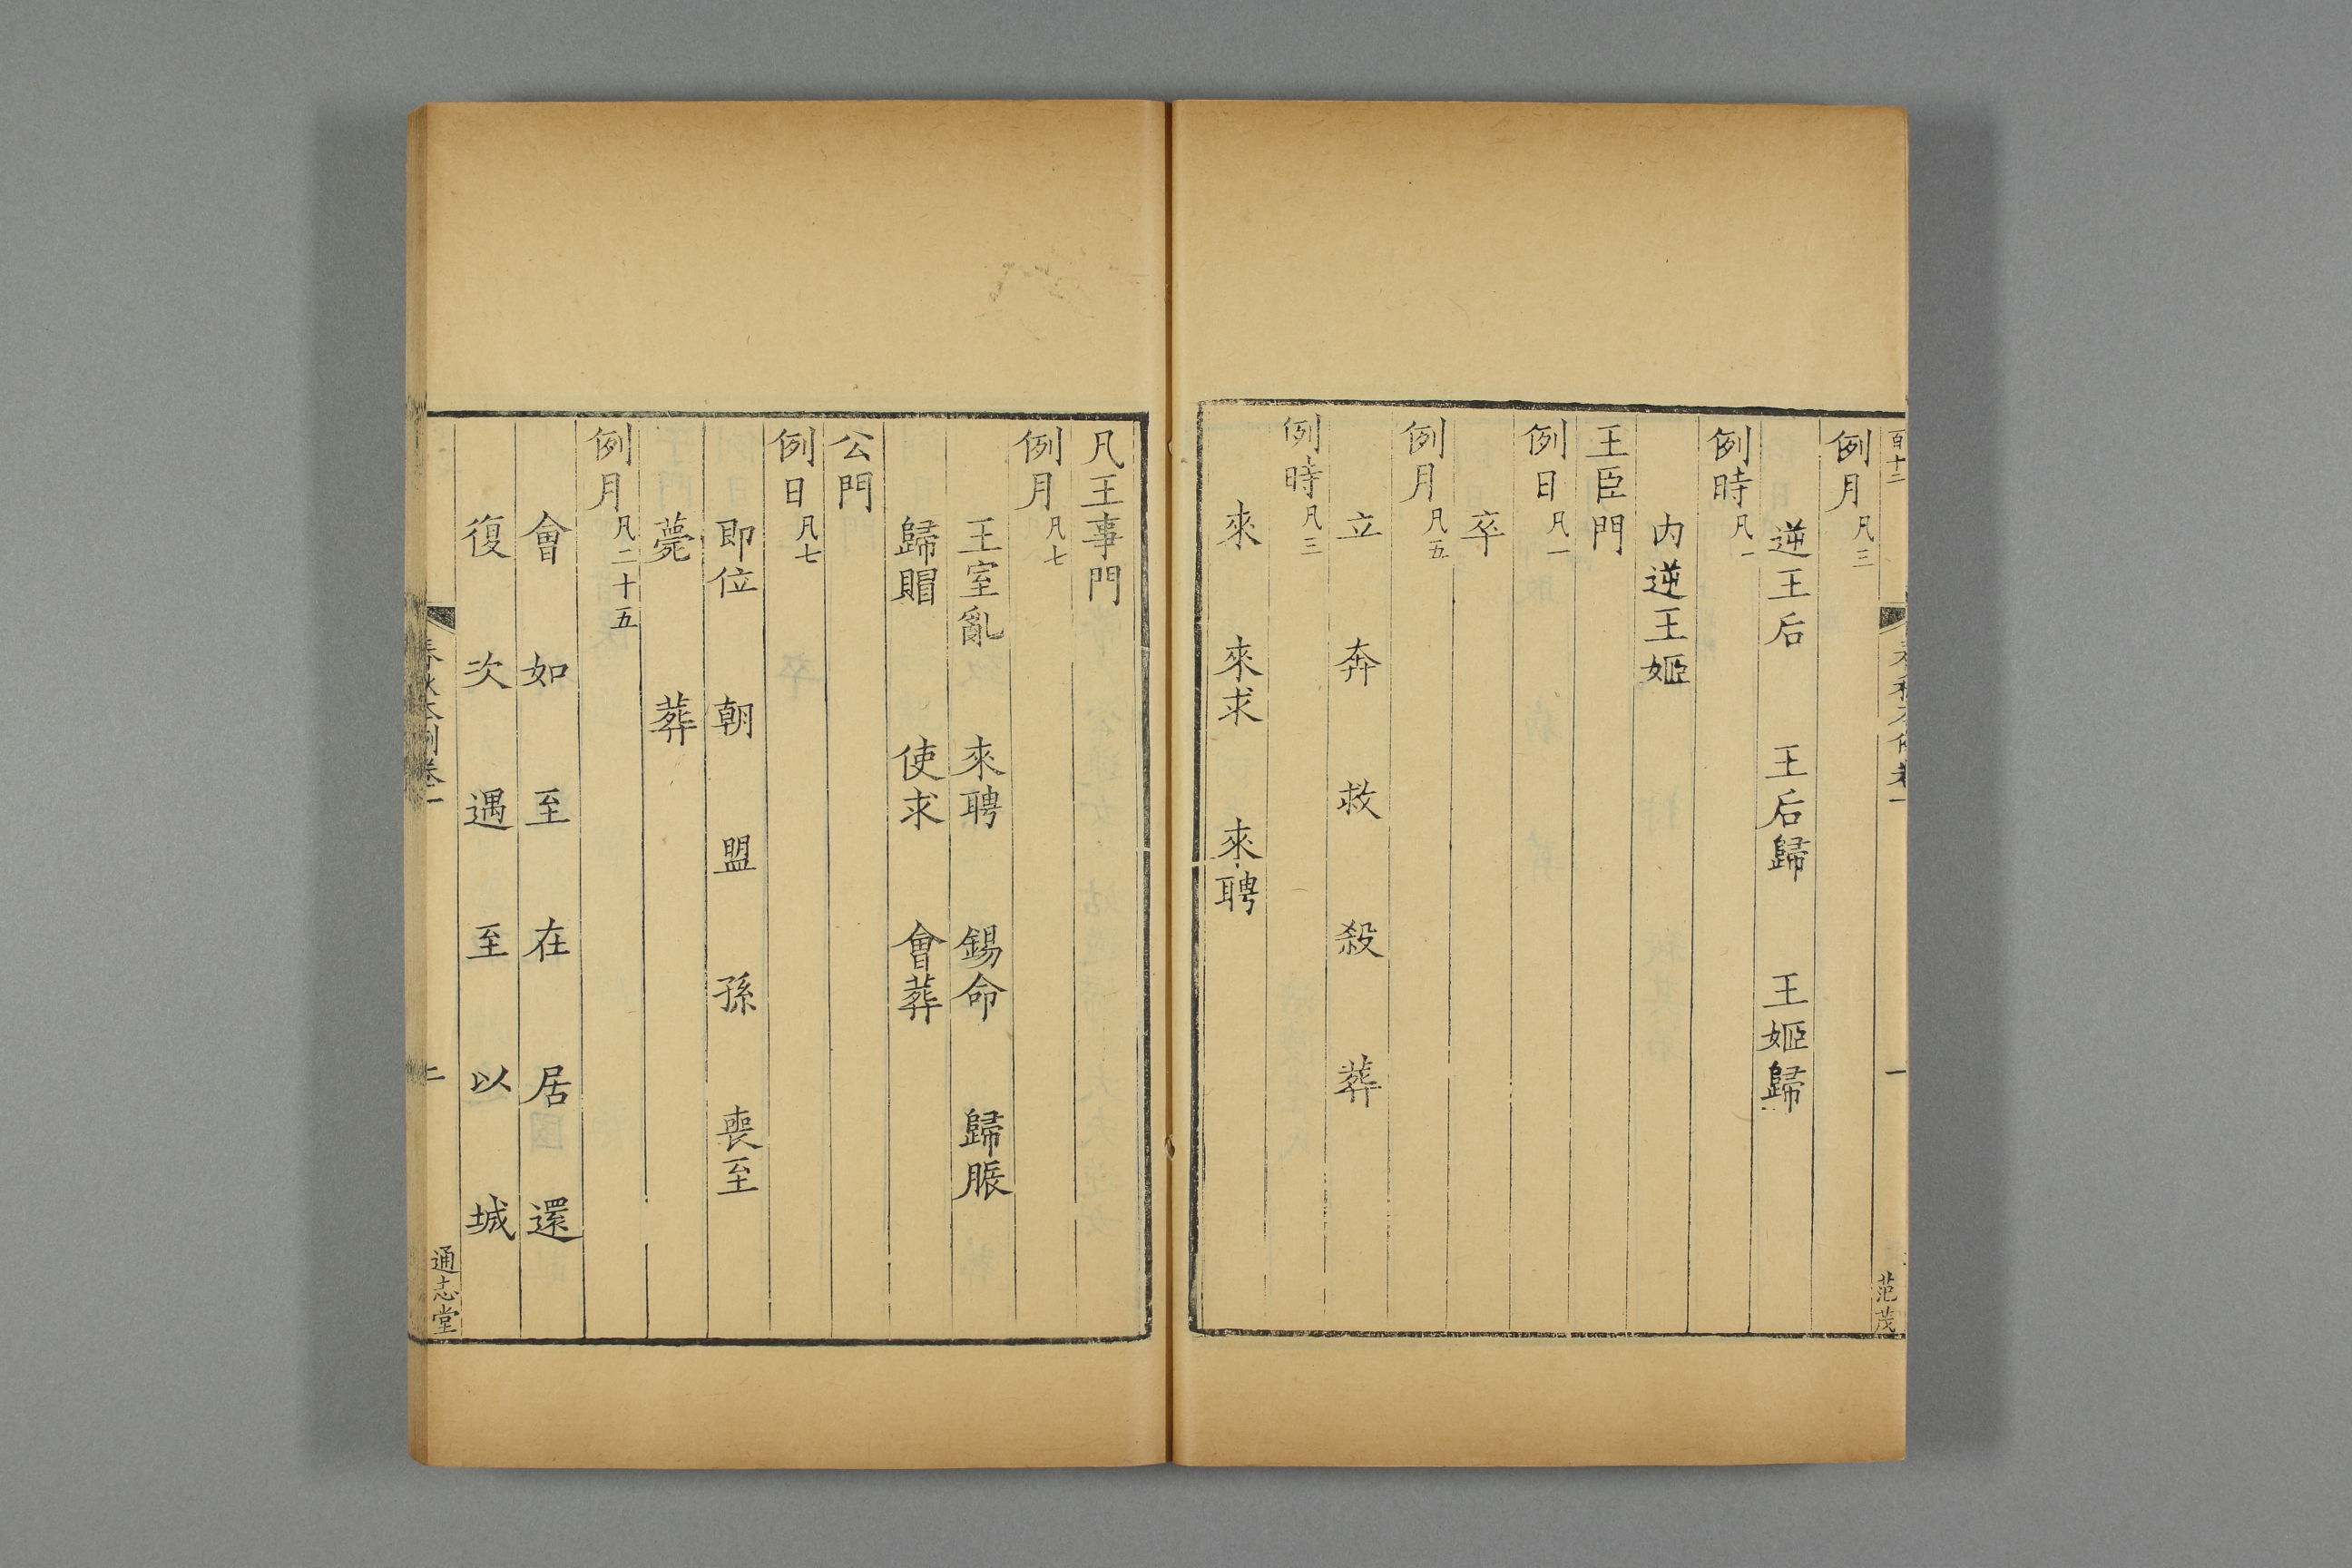 百十二
一
范茂
例月凡三
逆王后　王后歸　王姬歸
例時凡一
内逆王姬
王臣門
例日凡一
卒
例月凡五
立　奔　救　殺　葬
例時凡三
來　來求　來聘
凡王事門
例月凡七
王室亂　來聘　錫命　歸脤
歸賵　使求　會葬
公門
例日凡七
即位　朝　盟　孫　喪至
薨　葬
例月凡二十五
會　如　至　在　居　還
復　次　遇　至　以　城
二
通志堂